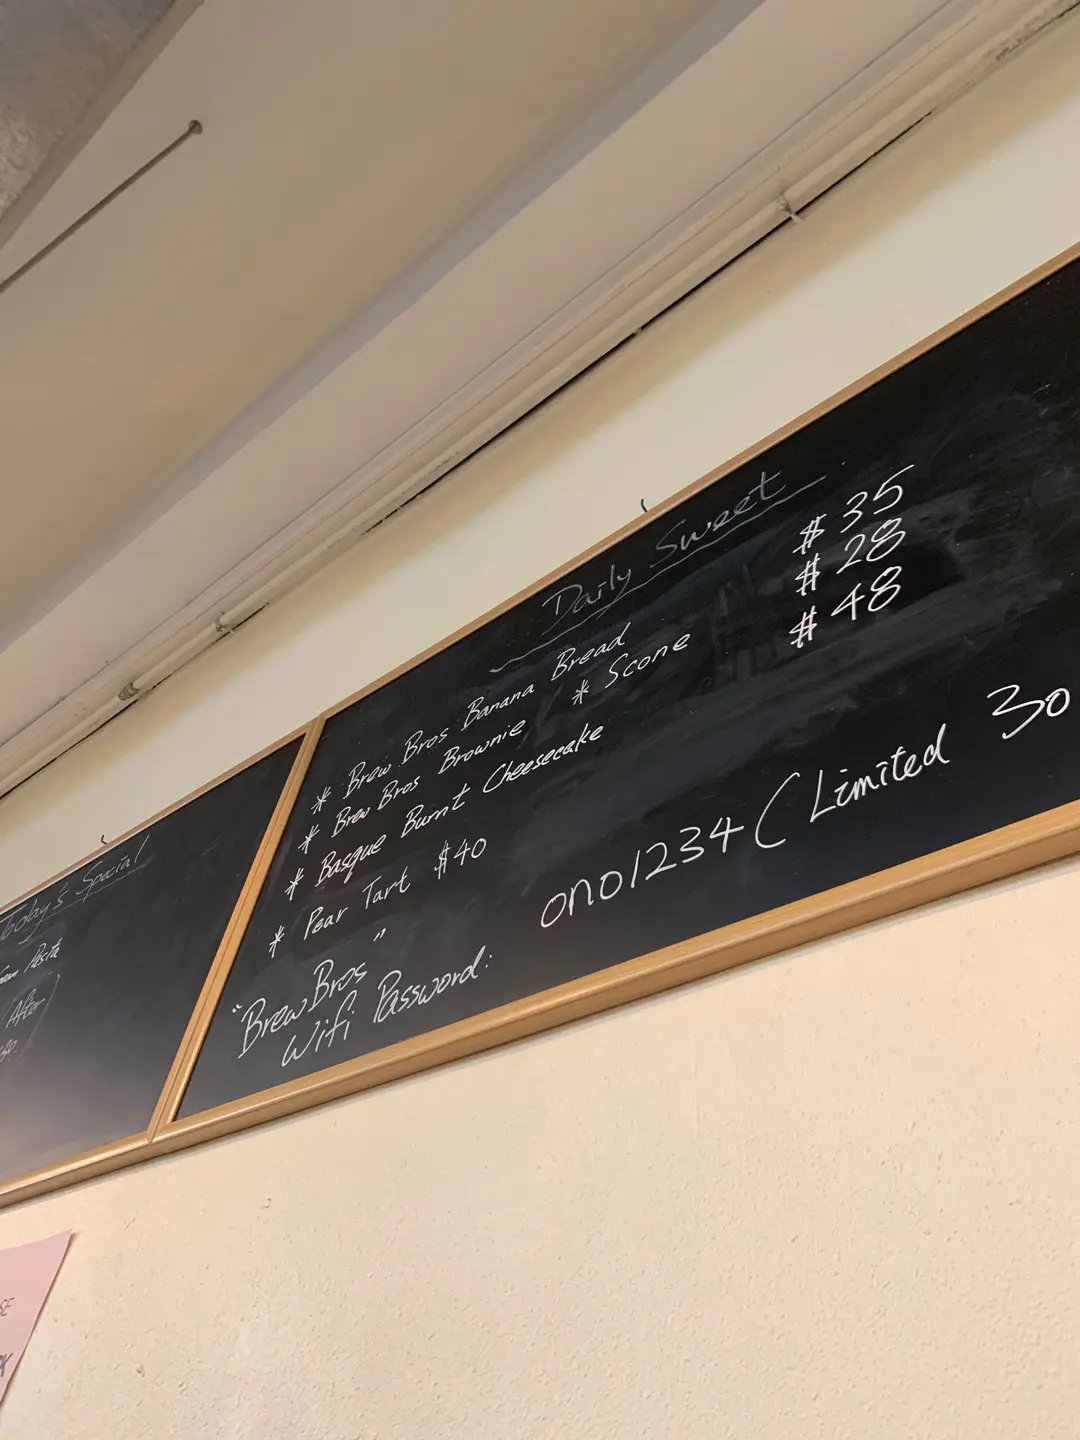 Today's Special
Pasta
After
Daily Sweet
* Brew Bros Banana Bread $35
* Brew Bros Brownie * Scone $28
* Basque Burnt Cheesecake $48
* Pear Tart $40
"BrewBros"
Wifi Password: ono1234 (Limited 30